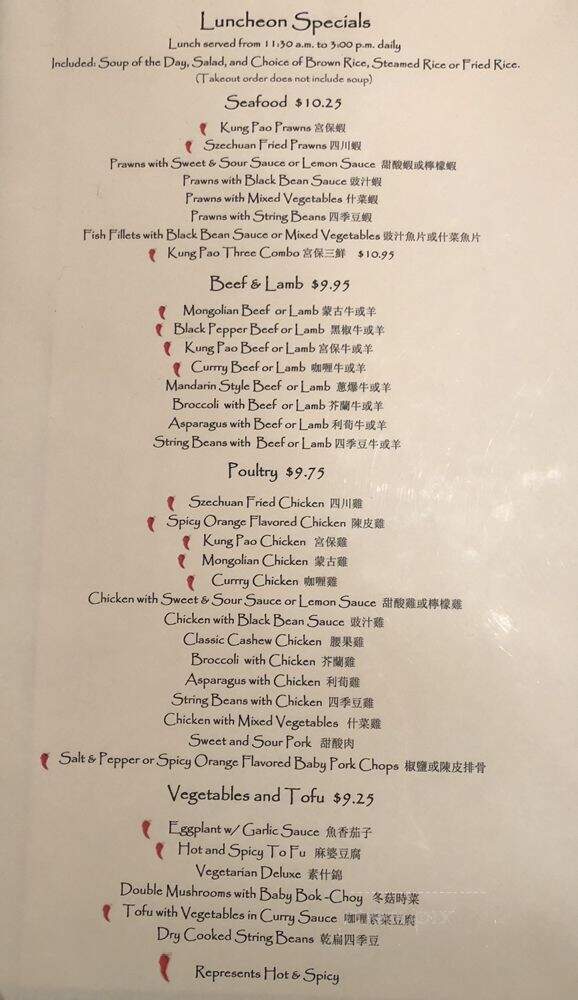 Luncheon Specials
Lunch served from 11:30 a.m. to 3:00 p.m. daily
Included: Soup of the Day, Salad, and Choice of Brown Rice, Steamed Rice or Fried Rice.
(Takeout order does not include soup)
Seafood $10.25
Kung Pao Prawns 宮保蝦
Szechuan Fried Prawns 四川蝦
Prawns with Sweet & Sour Sauce or Lemon Sauce 甜酸蝦或檸檬蝦
Prawns with Black Bean Sauce 豉汁蝦
Prawns with Mixed Vegetables 什菜蝦
Prawns with String Beans 四季豆蝦
Fish Fillets with Black Bean Sauce or Mixed Vegetables 豉汁魚片或什菜魚片
Kung Pao Three Combo 宮保三鮮 $10.95
Beef & Lamb $9.95
Mongolian Beef or Lamb 蒙古牛或羊
Black Pepper Beef or Lamb 黑椒牛或羊
Kung Pao Beef or Lamb 宮保牛或羊
Currry Beef or Lamb 咖喱牛或羊
Mandarin Style Beef or Lamb 蔥爆牛或羊
Broccoli with Beef or Lamb 芥蘭牛或羊
Asparagus with Beef or Lamb 利荀牛或羊
String Beans with Beef or Lamb 四季豆牛或羊
Poultry $9.75
Szechuan Fried Chicken 四川雞
Spicy Orange Flavored Chicken 陳皮雞
Kung Pao Chicken 宮保雞
Mongolian Chicken 蒙古雞
Currry Chicken 咖喱雞
Chicken with Sweet & Sour Sauce or Lemon Sauce 甜酸雞或檸檬雞
Chicken with Black Bean Sauce 豉汁雞
Classic Cashew Chicken 腰果雞
Broccoli with Chicken 芥蘭雞
Asparagus with Chicken 利荀雞
String Beans with Chicken 四季豆雞
Chicken with Mixed Vegetables 什菜雞
Sweet and Sour Pork 甜酸肉
Salt & Pepper or Spicy Orange Flavored Baby Pork Chops 椒鹽或陳皮排骨
Vegetables and Tofu $9.25
Eggplant w/ Garlic Sauce 魚香茄子
Hot and Spicy To Fu 麻婆豆腐
Vegetarian Deluxe 素什錦
Double Mushrooms with Baby Bok-Choy 冬菇時菜
Tofu with Vegetables in Curry Sauce 咖喱素菜豆腐
Dry Cooked String Beans 乾扁四季豆
Represents Hot & Spicy